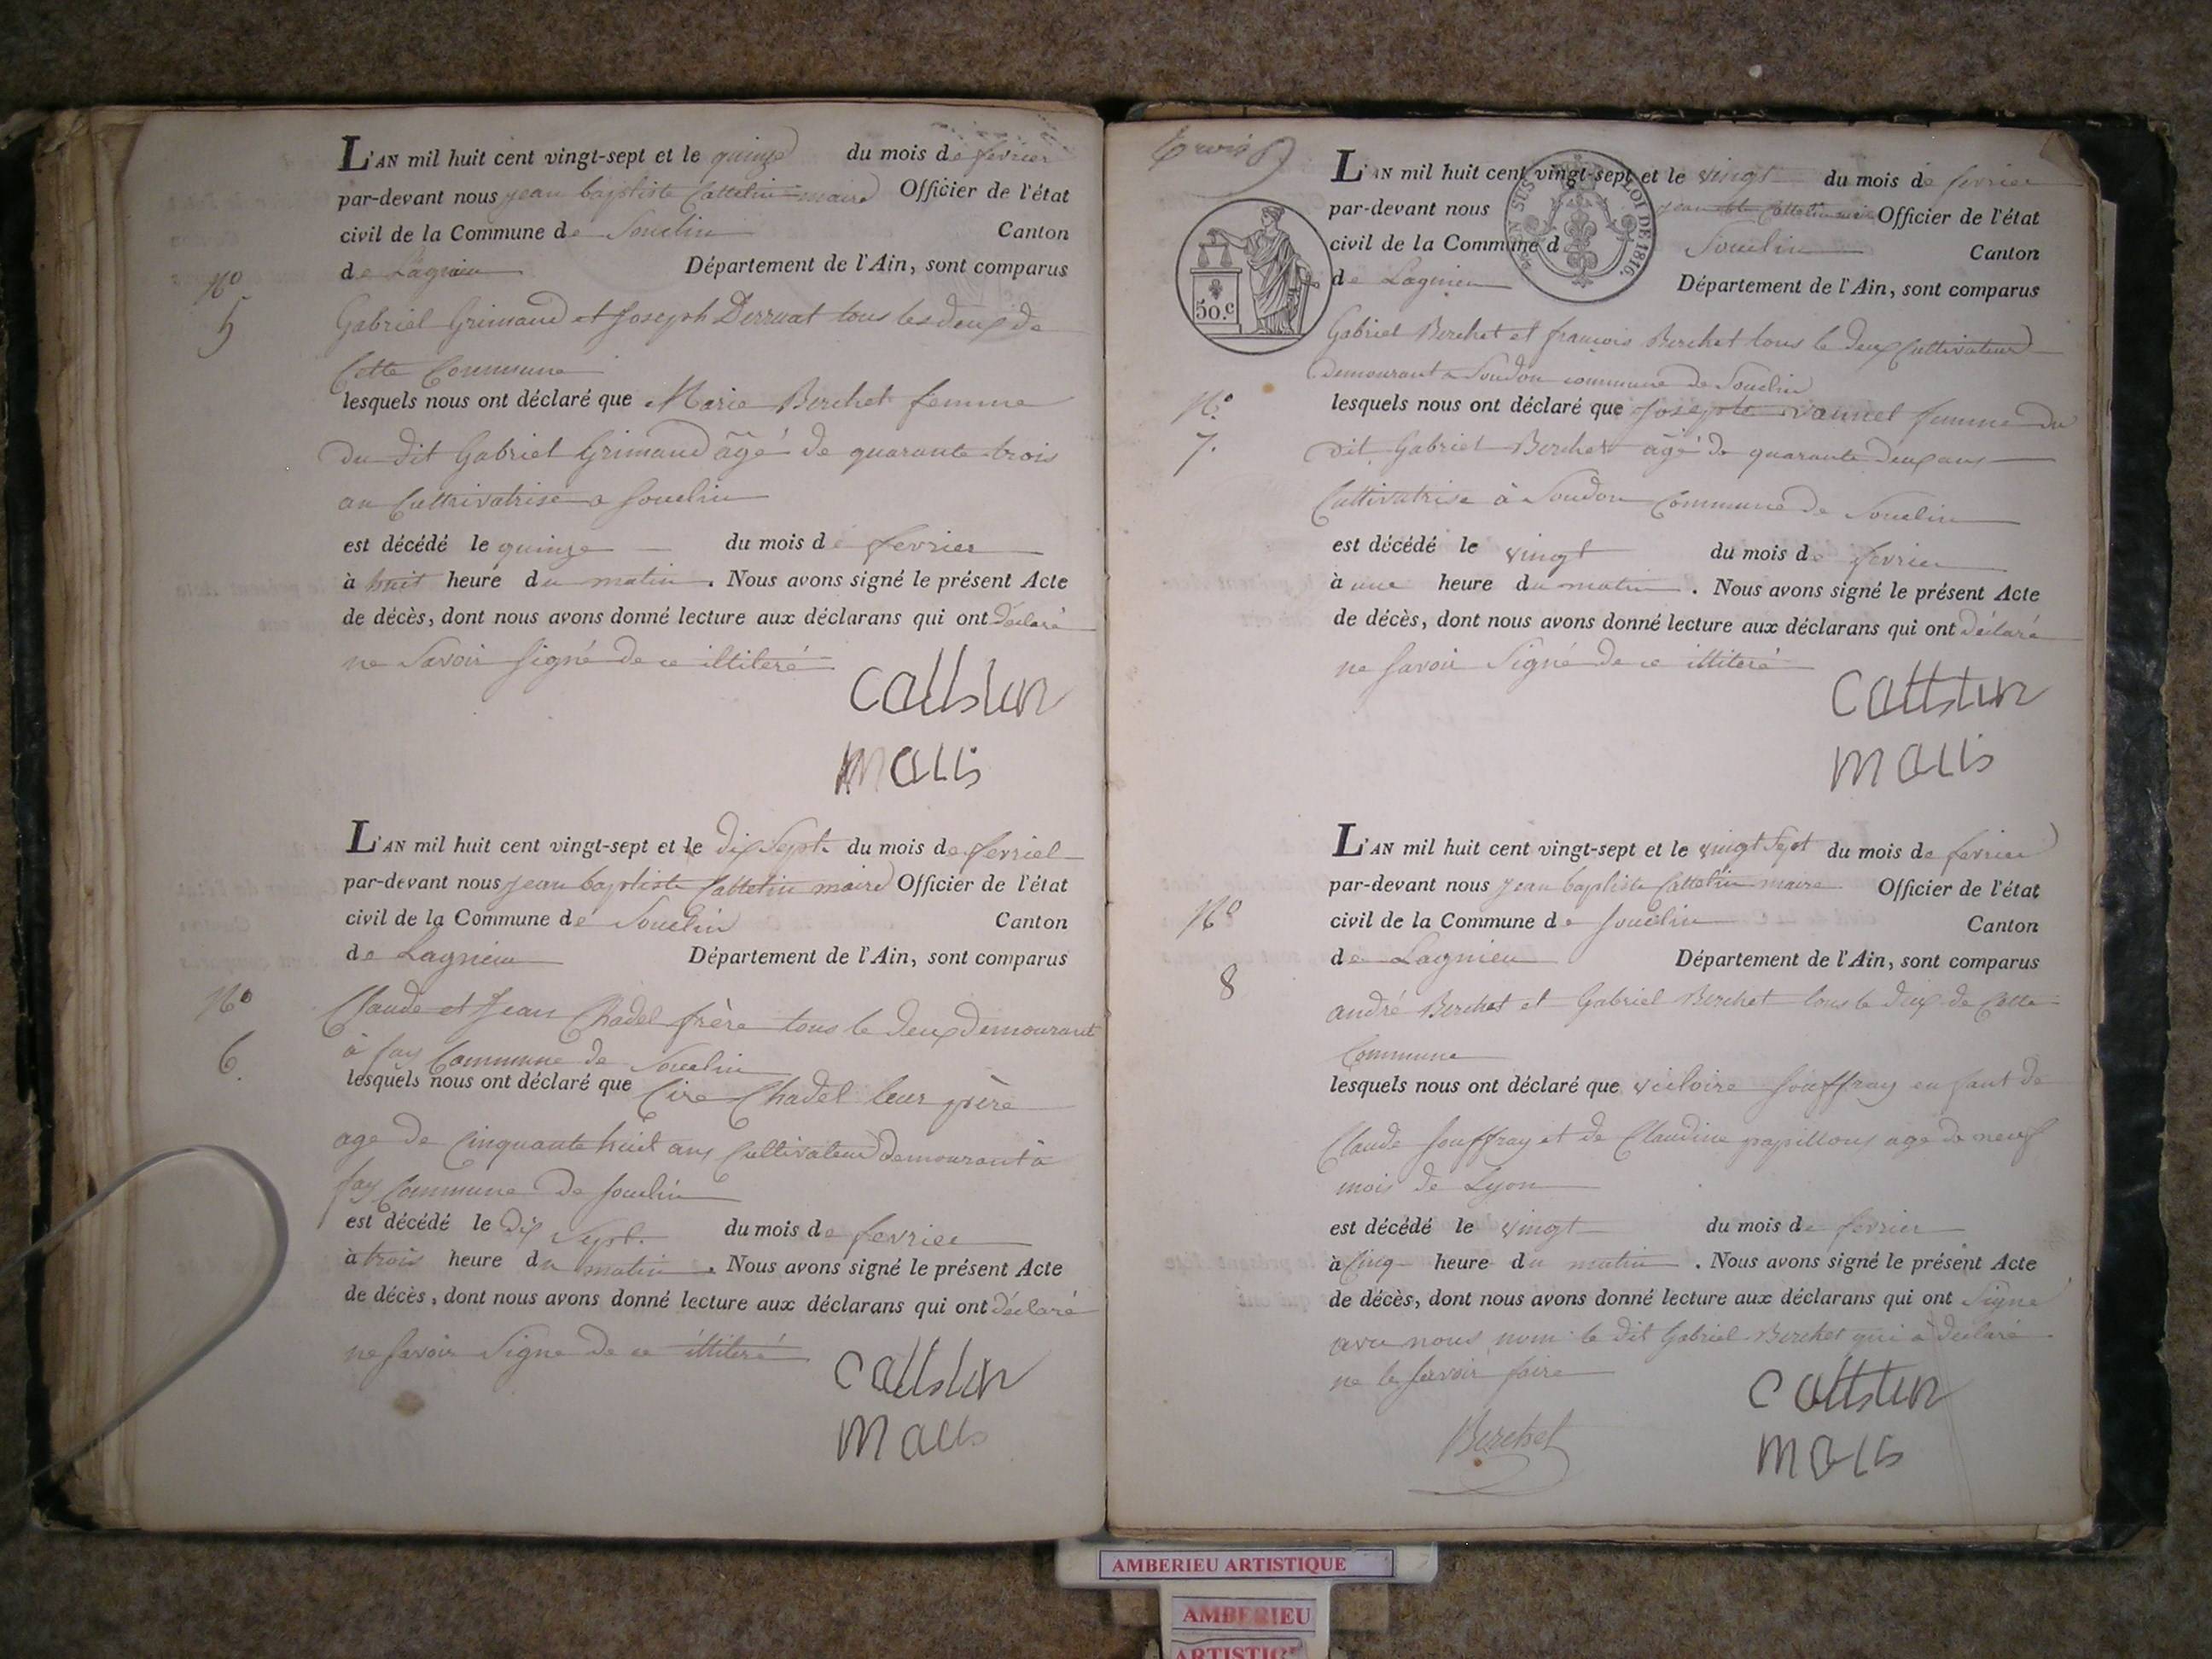 L'AN mil huit cent vingt-sept et le quinze du mois de fevrier
par-devant nous jean baptiste Cattelin maire Officier de l'état
civil de la Commune de Souclin Canton
de Lagnieu Département de l'Ain, sont comparus
N°
5
Gabriel Grimand et Joseph Derruat tous les deux de
Cette Commune
lesquels nous ont déclaré que Marie Berchet femme
du dit Gabriel Grimand âgé de quarante trois
an Cultrivatrise a Souclin
est décédé le quinze du mois de fevrier
à huit heure du matin. Nous avons signé le présent Acte
de décès, dont nous avons donné lecture aux déclarans qui ont déclaré
ne Savoir signé de ce illiteré
Cattelin
maire
L'AN mil huit cent vingt-sept et le dix Sept du mois de fevriel
par-devant nous jean baptiste Cattelin maire Officier de l'état
civil de la Commune de Souclin Canton
de Lagnieu Département de l'Ain, sont comparus
N°
6.
Claude et Jean Chadel frère tous le deux demourant
à fay Commune de Souclin
lesquels nous ont déclaré que Cire Chadel leur père
age de Cinquante huit ans Cultivateur demourant à
fay Commune de Souclin
est décédé le dix Sept. du mois de fevrier
à trois heure du matin. Nous avons signé le présent Acte
de décès, dont nous avons donné lecture aux déclarans qui ont déclaré
ne Savoir Signe de ce illiteré
Cattelin
maire
trois
L'AN mil huit cent vingt-sept et le vingt du mois de fevrier
par-devant nous jean bte Cattelin maire Officier de l'état
civil de la Commune d Souclin Canton
de Lagnieu Département de l'Ain, sont comparus
LOI DE 1816.
50.c
Gabriel Berchet et françois Berchet tous le deux Cultivateur
demourant a Soudon commune de Souclin
N°
7.
lesquels nous ont déclaré que Josephte vannel femme du
dit Gabriel Berchet âgé de quarante deux ans
Cultivatrise à Soudon Commune de Souclin
est décédé le vingt du mois de fevrier
à une heure du matin. Nous avons signé le présent Acte
de décès, dont nous avons donné lecture aux déclarans qui ont déclaré
ne Savoir Signé de ce illiteré
Cattelin
maire
L'AN mil huit cent vingt-sept et le vingt Sept du mois de fevrier
par-devant nous jean baptiste Cattelin maire Officier de l'état
civil de la Commune de Souclin Canton
de Lagnieu Département de l'Ain, sont comparus
N°
8
andré Berchet et Gabriel Berchet tous le deux de Cette
Commune
lesquels nous ont déclaré que victoire Souffray en fant de
Claude Souffray et de Claudine papillony age de neuf
mois de Lyon
est décédé le vingt du mois de fevrier
à Cinq heure du matin. Nous avons signé le présent Acte
de décès, dont nous avons donné lecture aux déclarans qui ont Signé
avec nous, nom le dit Gabriel Berchet qui à déclaré
ne le Savoir faire
Berchet
Cattelin
maire
AMBERIEU ARTISTIQUE
AMBERIEU